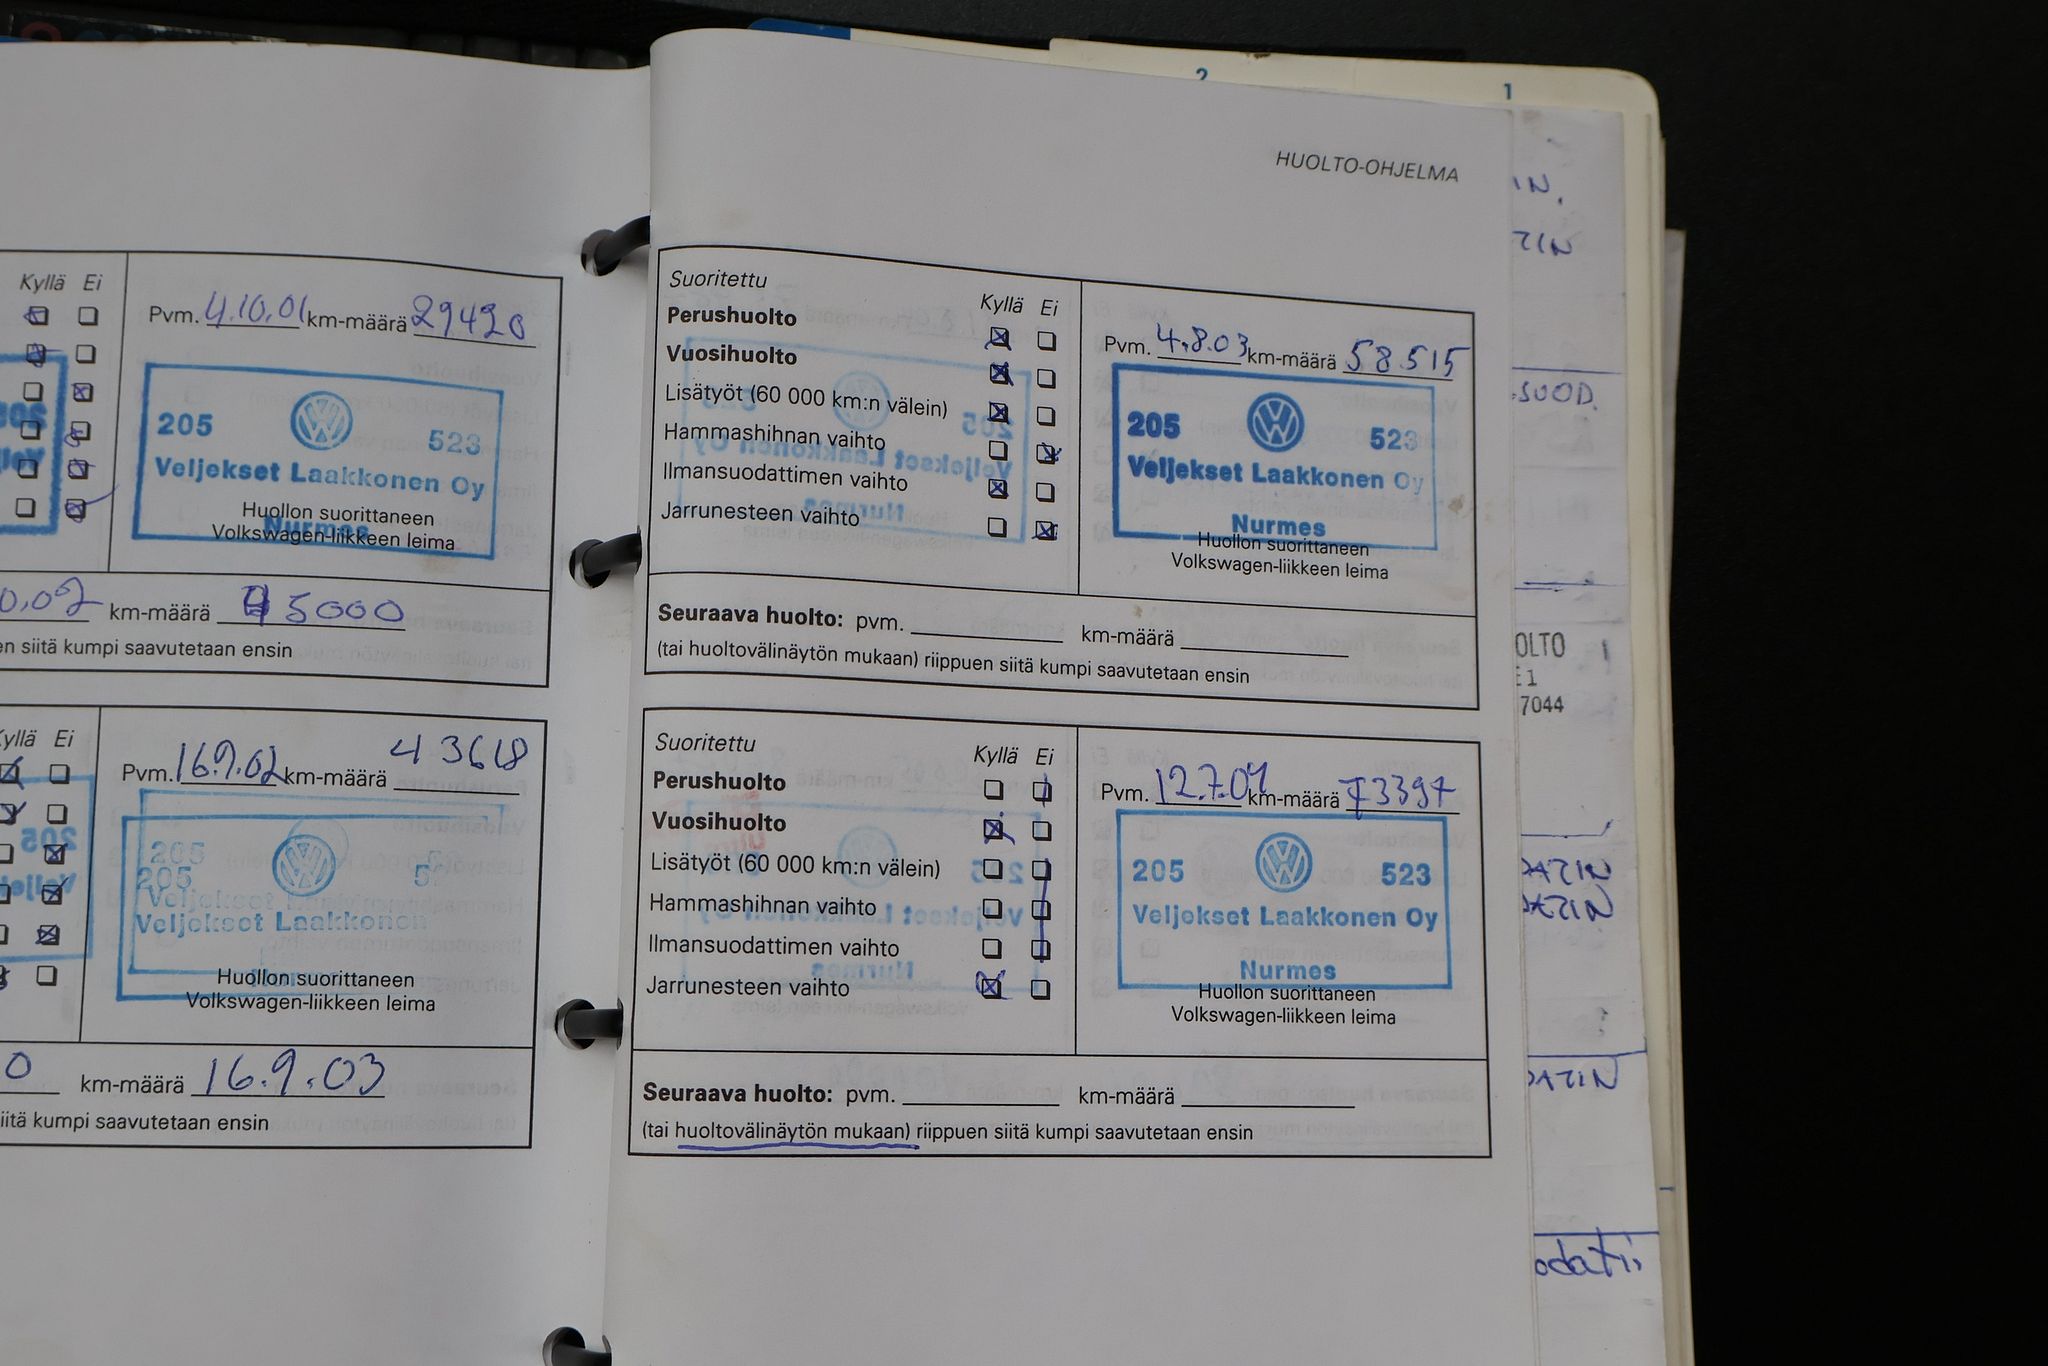 2
1
HUOLTO-OHJELMA
Kyllä Ei
Pvm. 4.10.01 km-määrä 29420
205 523
Veljekset Laakkonen Oy
Nurmes
Huollon suorittaneen
Volkswagen-liikkeen leima
km-määrä 45000
siitä kumpi saavutetaan ensin
Kyllä Ei
Pvm. 16.9.02 km-määrä 43618
205
205
Veljekset Laakkonen
Huollon suorittaneen
Volkswagen-liikkeen leima
0 km-määrä 16.9.03
kumpi saavutetaan ensin
Suoritettu Kyllä Ei
Perushuolto
Vuosihuolto
Lisätyöt (60 000 km:n välein)
Hammashihnan vaihto
Ilmansuodattimen vaihto
Jarrunesteen vaihto
Pvm. 4.8.03 km-määrä 58.515
205 523
Veljekset Laakkonen Oy
Nurmes
Huollon suorittaneen
Volkswagen-liikkeen leima
Seuraava huolto: pvm. km-määrä
(tai huoltovälinäytön mukaan) riippuen siitä kumpi saavutetaan ensin
Suoritettu Kyllä Ei
Perushuolto
Vuosihuolto
Lisätyöt (60 000 km:n välein)
Hammashihnan vaihto
Ilmansuodattimen vaihto
Jarrunesteen vaihto
Pvm. 12.7.04 km-määrä 73397
205 523
Veljekset Laakkonen Oy
Nurmes
Huollon suorittaneen
Volkswagen-liikkeen leima
Seuraava huolto: pvm. km-määrä
(tai huoltovälinäytön mukaan) riippuen siitä kumpi saavutetaan ensin
7044